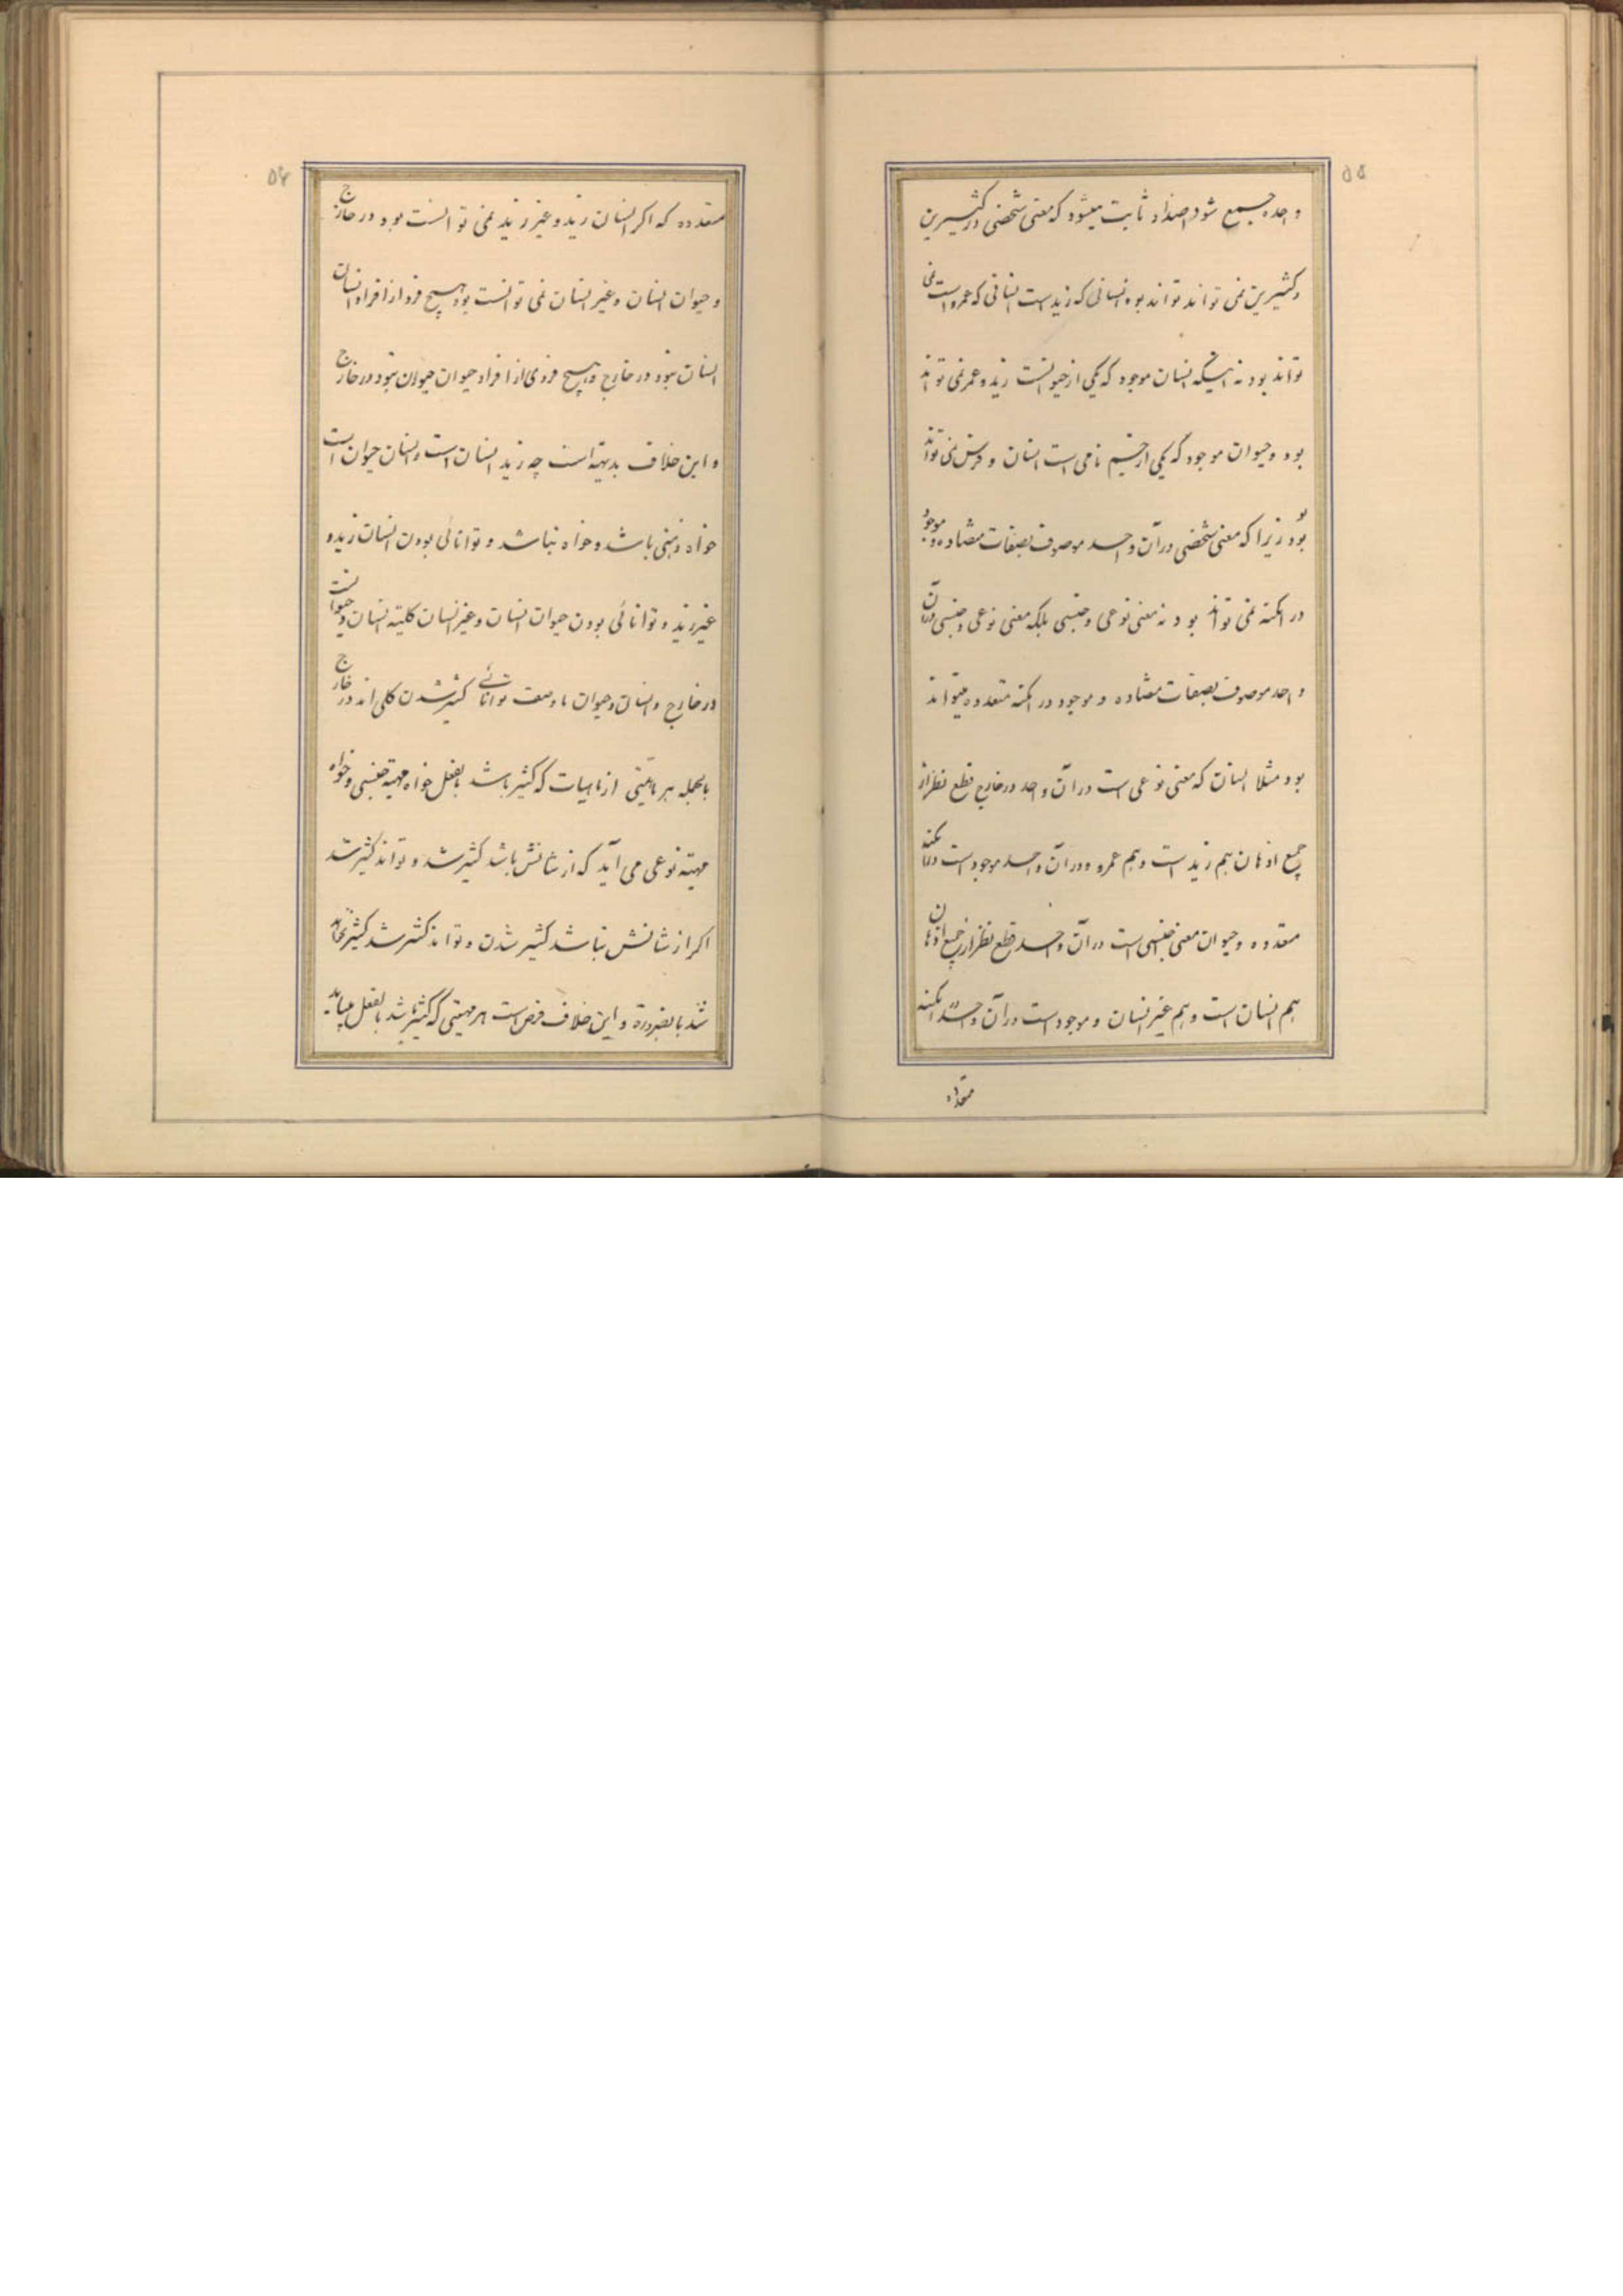 ۵۵
واحده جمیع شود اضداد ثابت میشود که معنی شخصی در کثیرین
و کثیرین نمی تواند تواند بود انسانی که زید است انسانی که عمرو است نمی
تواند بود نه اینکه انسان موجود که یکی از حیوانست زید و عمر نمی تواند
بود و حیوان موجود که یکی از جسم نامی است انسان و فرس نمی تواند
بود زیرا که معنی شخصی در آن واحد موصوف بصفات متضاده و موجود
در امکنه نمی تواند بود نه معنی نوعی و جنسی بلکه معنی نوعی و جنسی در آن
واحد موصوف بصفات متضاده و موجود در امکنه متعدده میتواند
بود مثلا انسان که معنی نوعی است در آن واحد در خارج قطع نظر از
جمیع اذهان هم زید است و هم عمرو و در آن واحد موجود است در امکنه
متعدده و حیوان معنی جنسی است در آن واحد قطع نظر از جمیع اذهان
هم انسان است و هم غیر انسان و موجود است در آن واحد در امکنه
متعدده
۵۶
متعدده که اکر انسان زید و غیر زید نمی توانست بود در خارج
و حیوان انسان و غیر انسان نمی توانست بود هیچ فرد از افراد انسان
انسان نبود در خارج و هیچ فردی از افراد حیوان حیوان نبود در خارج
و این خلاف بدیهه است چه زید انسان است و انسان حیوان است
خواه ذهنی باشد و خواه نباشد و توانائی بودن انسان زید و
غیر زید و توانائی بودن حیوان انسان و غیر انسان کلیة انسان و حیوانست
در خارج و انسان و حیوان با وصف توانائی کثیر شدن کلی اند در خارج
بالجمله هر ماهیتی از ماهیات که کثیر باشد بالفعل خواه مهیة جنسی و خواه
مهیة نوعی می آید که از شانش باشد کثیر شد و تواند کثیر شد
اکر از شانش نباشد کثیر شدن و تواند کثیر شد کثیر نخواهد
شد بالضرورة و این خلاف فرض است هر مهیتی که کثیر باشد بالفعل میباید